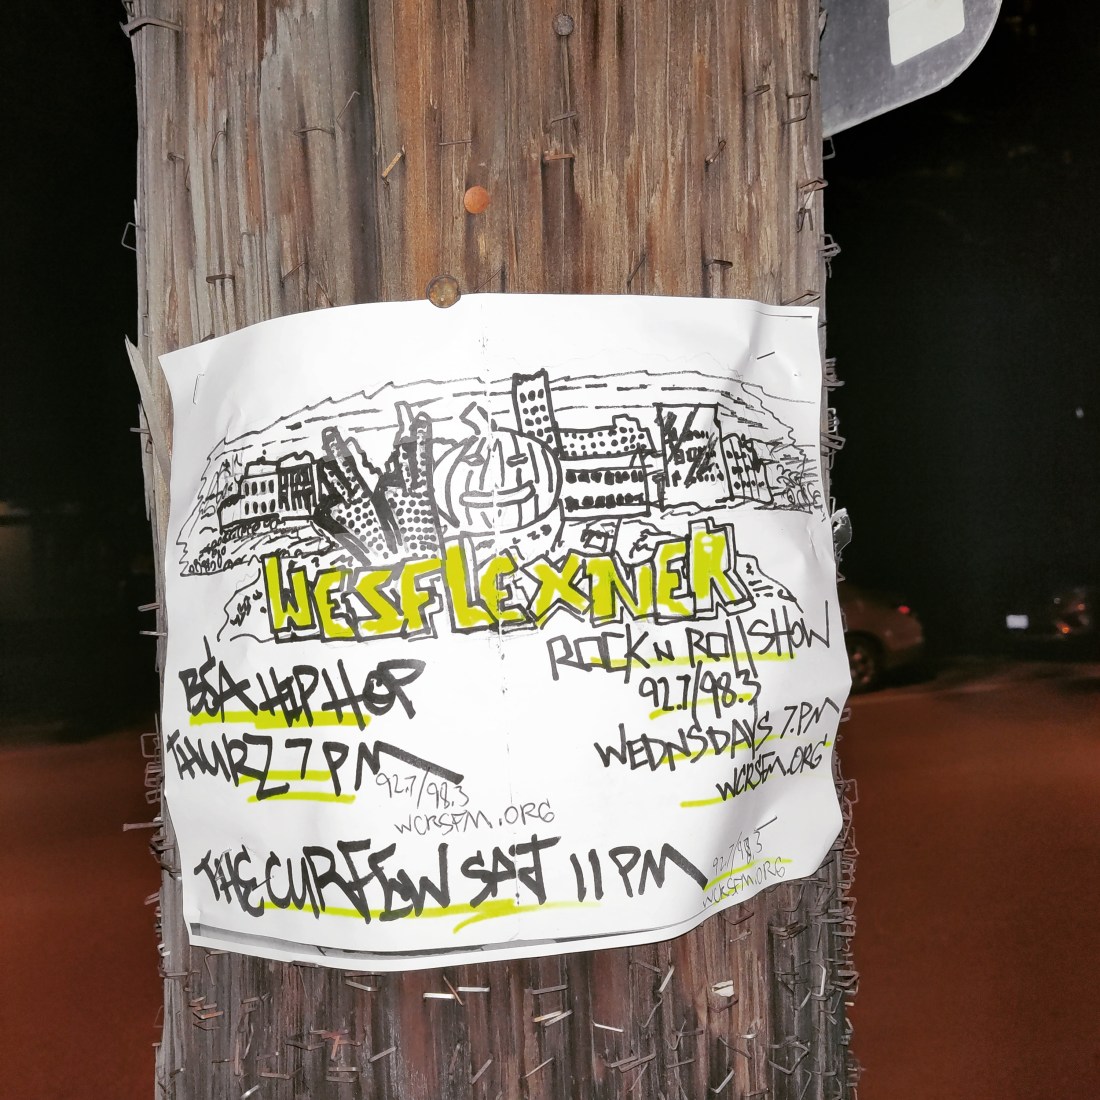 WESFLEXNER
B&A HIP HOP
THURZ 7 PM
92.7/98.3
WCRSFM.ORG
ROCK N ROLL SHOW
92.7/98.3
WEDNSDAYS 7.PM
WCRSFM.ORG
THE CURFEW SAT 11 PM
92.7/98.3
WCRSFM.ORG